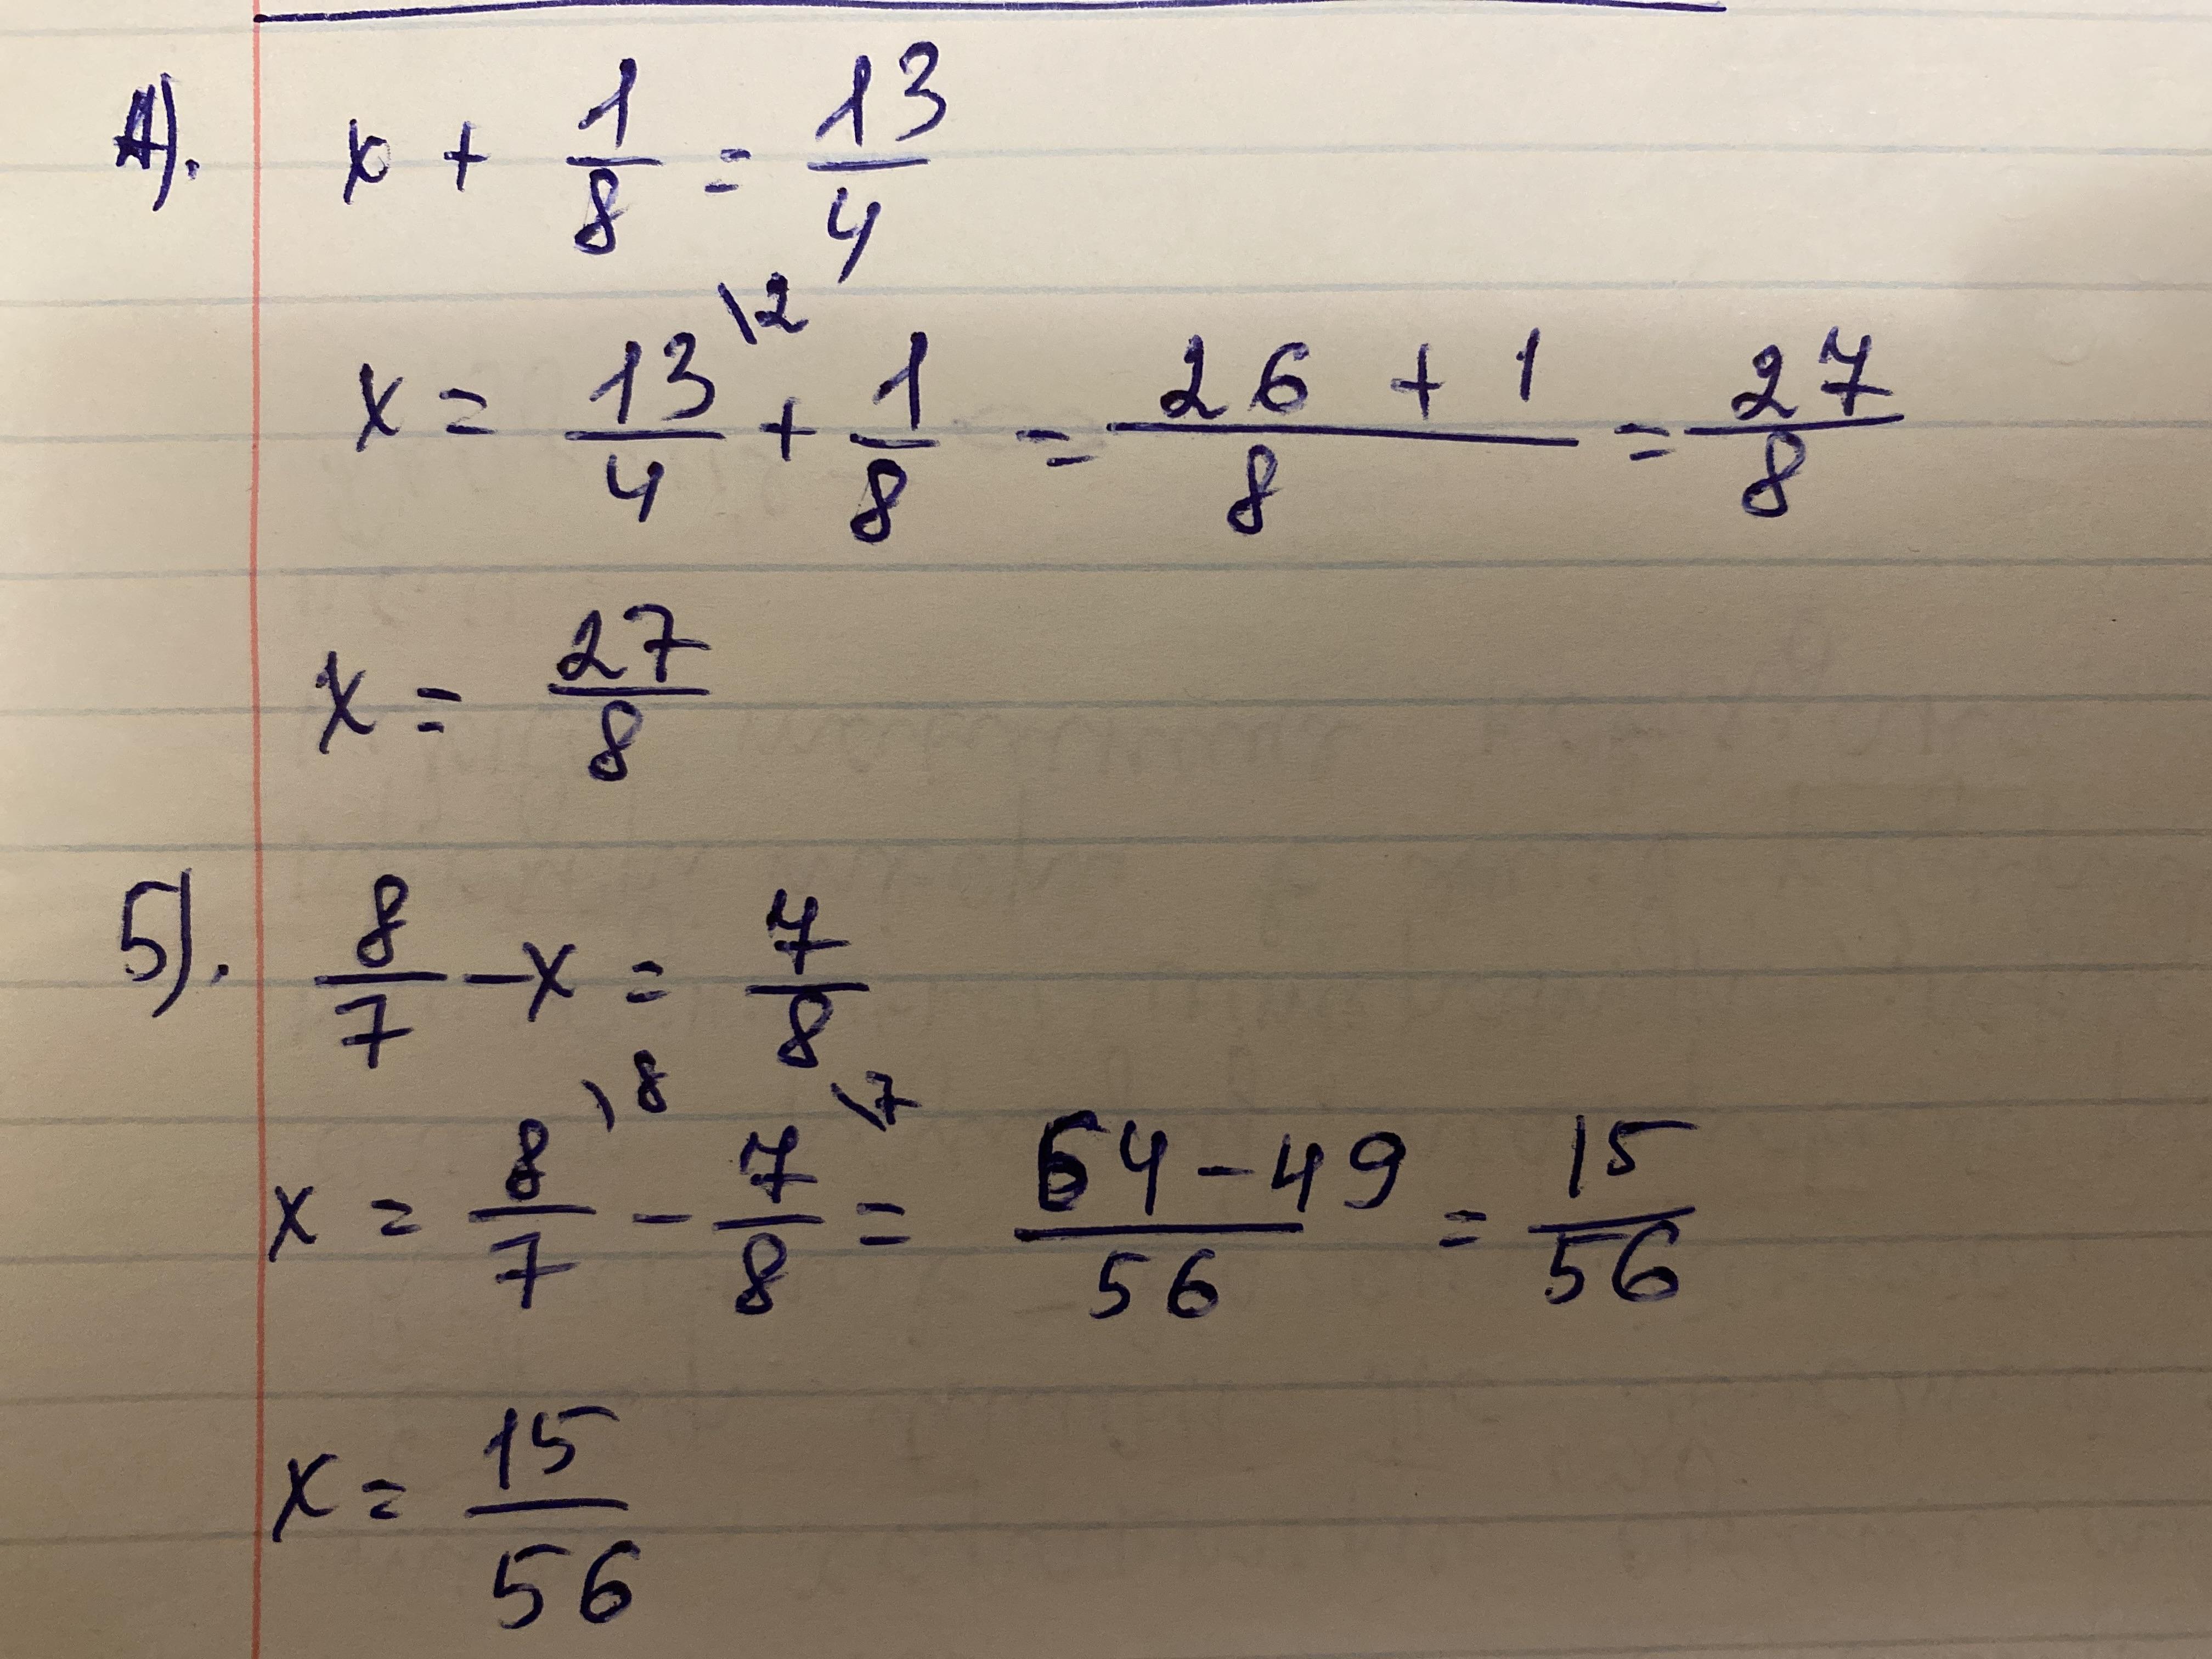 4). x + 1/8 = 13/4
x = 13/4 \2 + 1/8 = 26 + 1/8 = 27/8
x = 27/8
5). 8/7 - x = 7/8
x = 8/7 \8 - 7/8 \7 = 64 - 49/56 = 15/56
x = 15/56